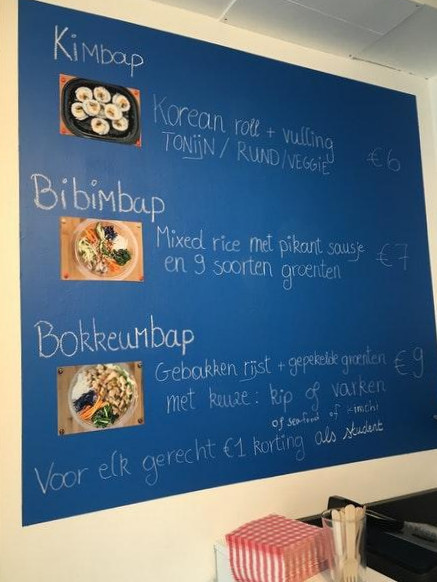 Kimbap
Korean roll + vulling
TONijN / RUND/VEGGiE
€6
Bibimbap
Mixed rice met pikant sausje
en 9 soorten groenten
€7
Bokkeumbap
Gebakken rijst + gepekelde groenten
€9
met keuze: kip of varken
of seafood of
Voor elk gerecht €1 korting als student